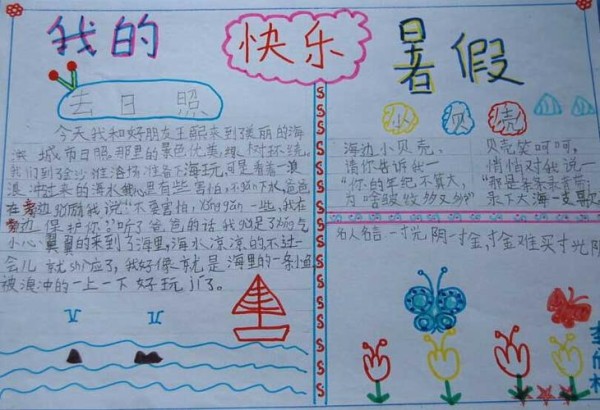 我的快乐暑假
去日照
今天我和好朋友王熙来到了美丽的海
滨城市日照。那里的景色优美,绿树环绕,
我们到金沙滩浴场准备下海玩,可是看着一浪
浪冲过来的海水我心里有些害怕,不gǎn下水,爸爸
在旁边鼓励我说:“不要害怕,yǒnggǎn一些,我在
旁边保护你。”听了爸爸的话我gǔ足了yǒng气
小心翼翼的来到了海里,海水凉凉的不过一
会儿就shì应了,我好像就是海里的一条小鱼
被浪冲的一上一下好玩jí了。
小贝壳
海边小贝壳,
请你告诉我—
“你的年纪不算大,
为啥皱纹多又多?”
贝壳笑呵呵,
悄悄对我说—
“那是
来下大海一支歌
名人名言 一寸光阴一寸金,寸金难买寸光阴
李